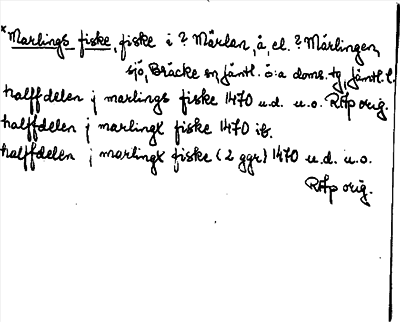 *Marlings fiske, fiske i ? Mårlan, å, el. ? Mårlingen,
sjö, Bräcke sn, Jämtl. ö:a doms. tg, Jämtl. l.
halffdelen j marlings fiske 1470 u.d. u.o. RAp orig.
halffdelen j marlingx fiske 1470 ib.
halffdelen j marlingx fiske (2 ggr) 1470 u.d. u.o.
RAp orig.